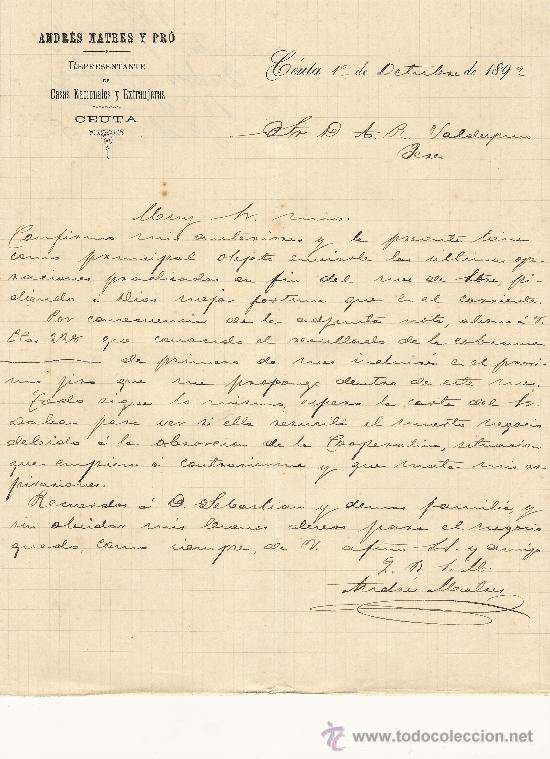 ANDRÉS MATRES Y PRÓ
REPRESENTANTE
DE
Casas Nacionales y Extranjeras
CEUTA
Céuta 1º de Octubre de 189
Sr D A. R. Valdespino
Jerez
Muy Sr. mio.
Confirmo mis anteriores y la presente tiene
como principal objeto enviarle las ultimas ope
raciones practicadas en fin del mes de 7bre, pi
diendo á Dios mejor fortuna que en el corriente.
Por consecuencia de la adjunta nota, abono á V.
que conocido el resultado de la cobranza
de primero de mes incluiré en el proxi
mo giro que me propongo dentro de este mes.
Todo sigue lo mismo, espero la carta del Sr
para ver si ella resucita el muerto negocio
debido á la absorcion de la Cooperativa, situacion
que empieza á contrariarme y que mata mis as
piraciones.
Recuerdos á D. Sebastian y demas familia, y
sin olvidar mis buenos deseos para el negocio
quedo, como siempre, de V. afmo. S.S. y amigo
Q. B. S. M.
Andrés Matres
www.todocoleccion.net